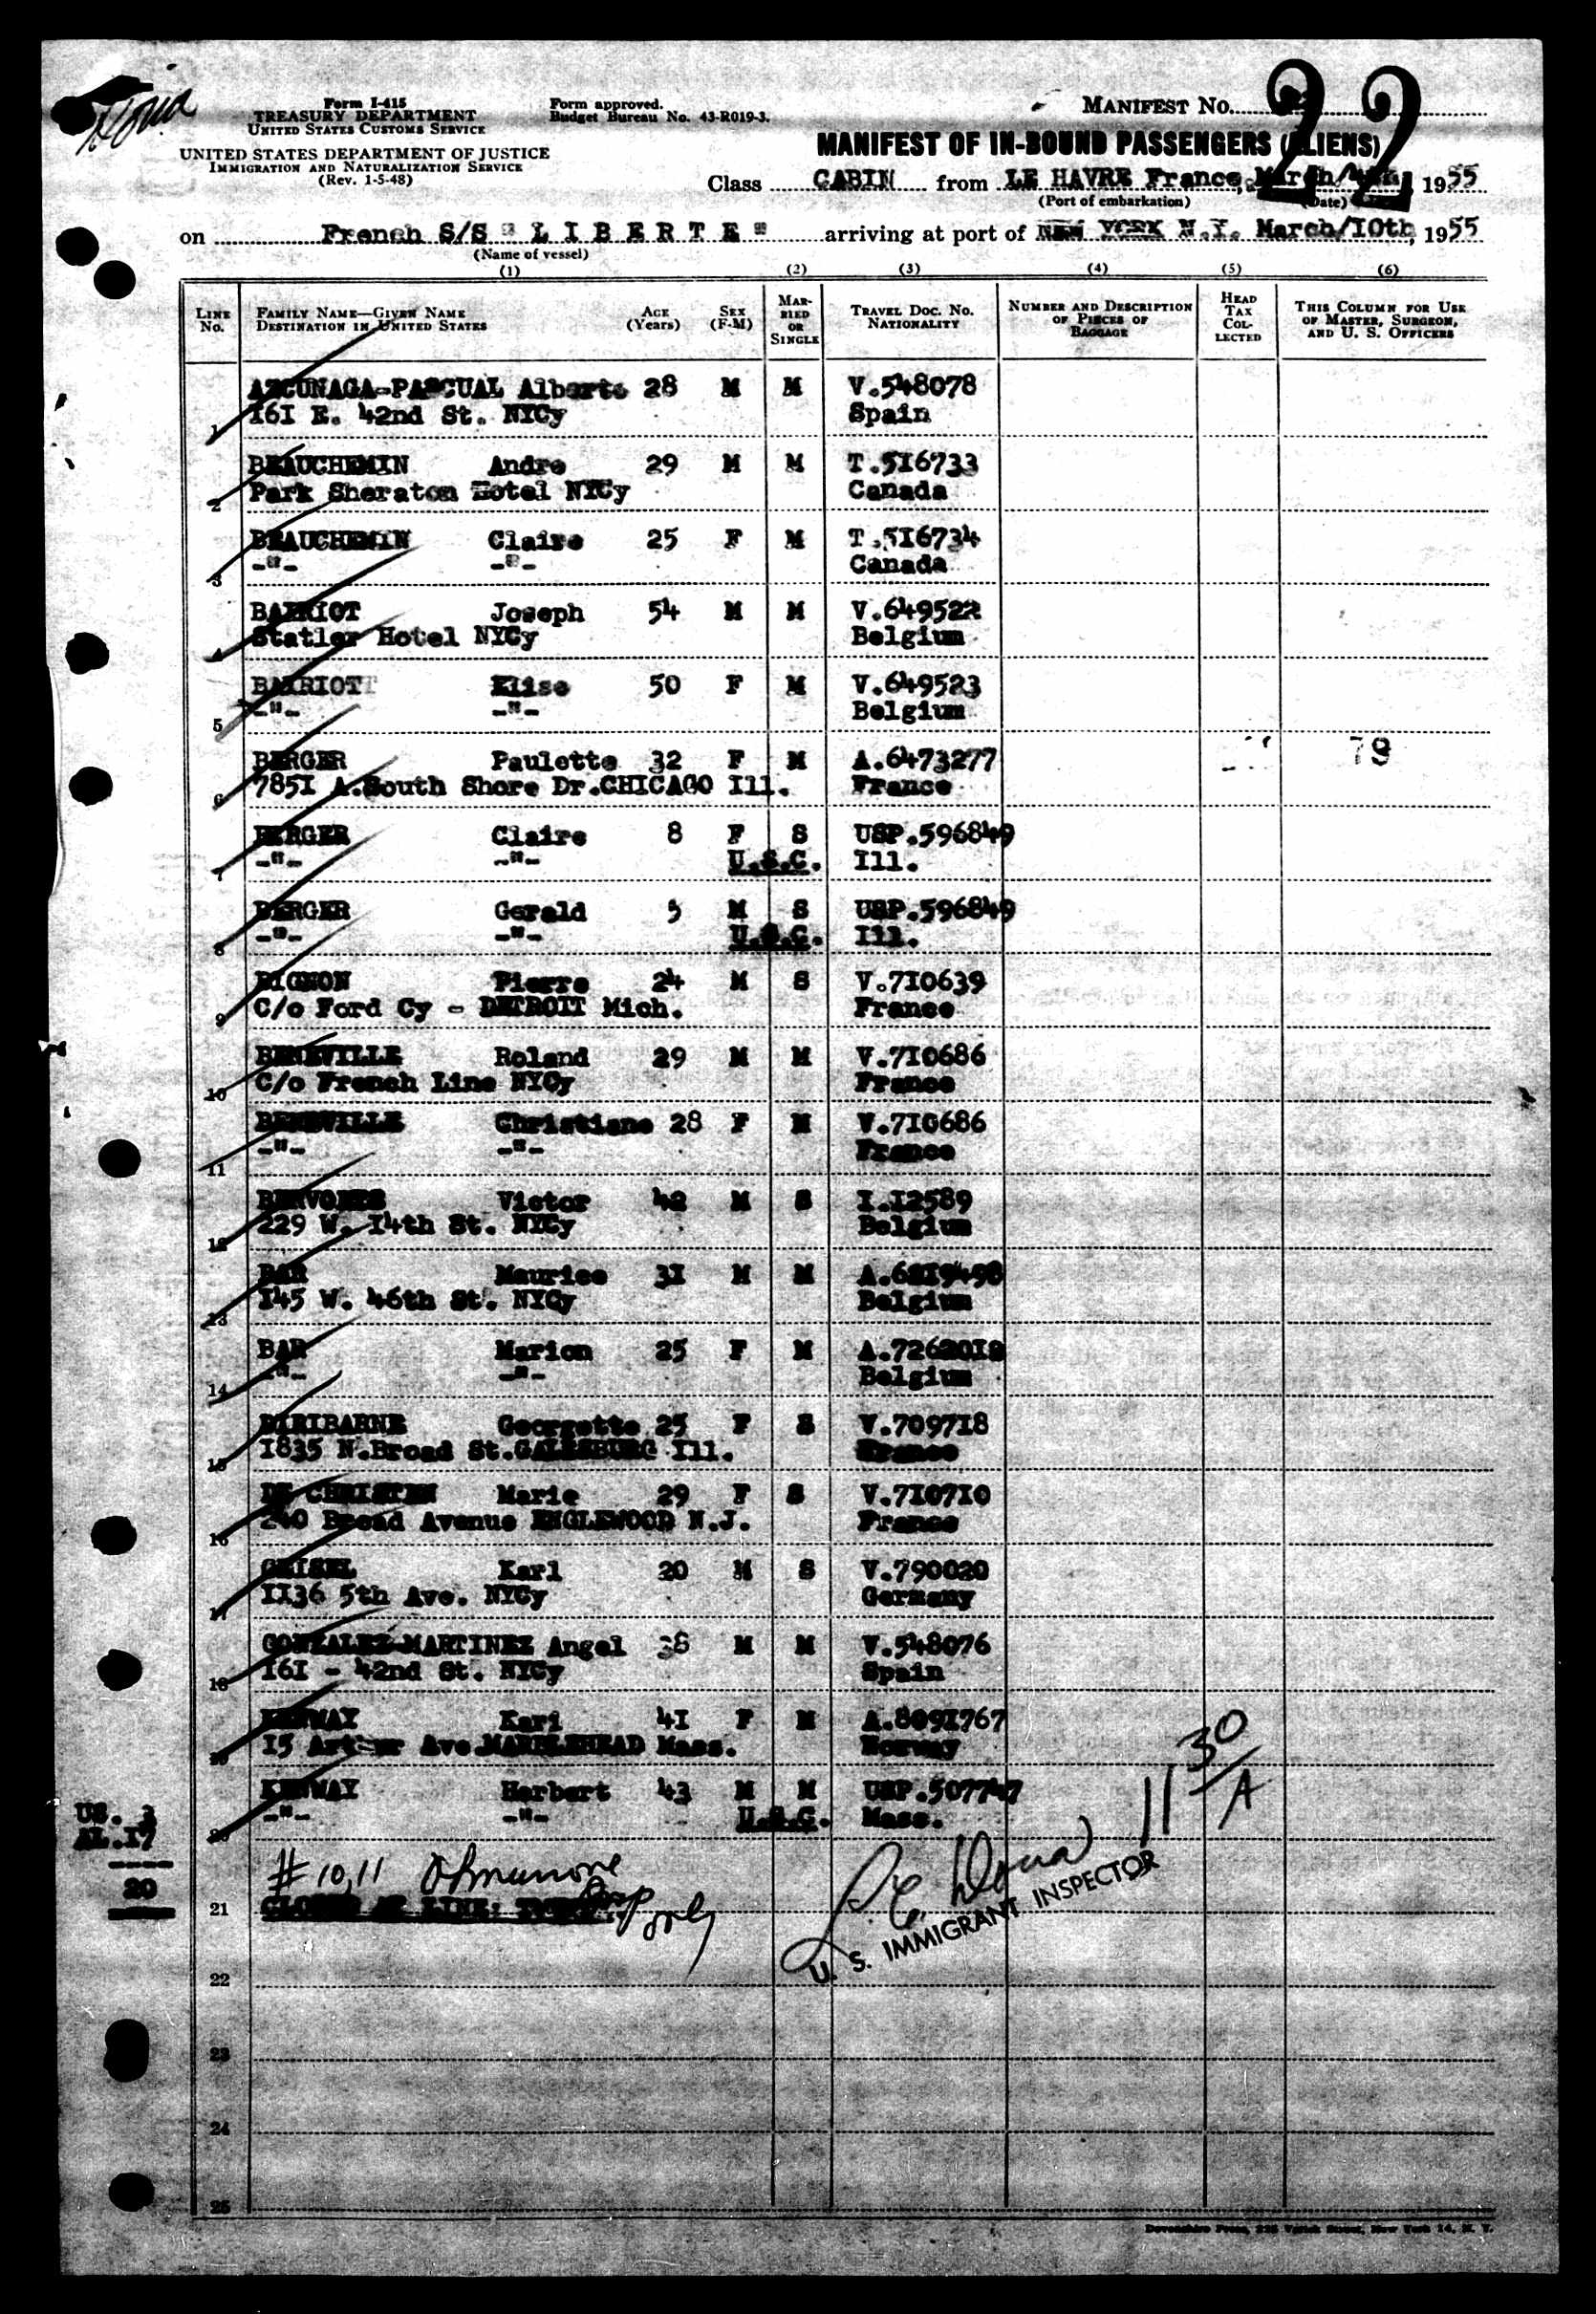 Form I-415
TREASURY DEPARTMENT
UNITED STATES CUSTOMS SERVICE
UNITED STATES DEPARTMENT OF JUSTICE
IMMIGRATION AND NATURALIZATION SERVICE
(Rev. 1-5-48)
Form approved.
Budget Bureau No. 43-R019-3.
MANIFEST NO. 22
MANIFEST OF IN-BOUND PASSENGERS (ALIENS)
Class CABIN from LE HAVRE France, March/ 1955
(Port of embarkation) (Date)
on French S/S " L I B E R T E " arriving at port of NEW YORK N.Y. March/10th, 1955
(Name of vessel)
(1) (2) (3) (4) (5) (6)
LINE No. FAMILY NAME—GIVEN NAME DESTINATION IN UNITED STATES AGE (Years) SEX (F-M) MARRIED OR SINGLE TRAVEL DOC. NO. NATIONALITY NUMBER AND DESCRIPTION OF PIECES OF BAGGAGE HEAD TAX COLLECTED THIS COLUMN FOR USE OF MASTER, SURGEON, AND U. S. OFFICERS
AZCUNAGA-PASCUAL Alberto 28 M M V.548078
1 161 E. 42nd St. NYCy Spain
BEAUCHEMIN Andre 29 M M T.516733
2 Park Sheraton Hotel NYCy Canada
BEAUCHEMIN Claire 25 F M T.516734
3 -"- -"- Canada
Joseph 54 M M V.649522
4 Statler Hotel NYCy Belgium
Elise 50 F M V.649523
5 -"- -"- Belgium
BERGER Paulette 32 F M A.6473277 79
6 7851 A.South Shore Dr.CHICAGO Ill. France
BERGER Claire 8 F S USP.596849
7 -"- -"- U.S.C. Ill.
BERGER Gerald 5 M S USP.596849
8 -"- -"- U.S.C. Ill.
BIGNON Pierre 24 M S V.710639
9 C/o Ford Cy - DETROIT Mich. France
BENEVILLE Roland 29 M M V.710686
10 C/o French Line NYCy France
BENEVILLE Christiane 28 F M V.710686
11 -"- -"- France
Victor 42 M S I.12589
12 229 W. 14th St. NYCy Belgium
BAR Maurice 31 M M A.6219498
13 145 W. 46th St. NYCy Belgium
BAR Marion 25 F M A.7262018
14 -"- -"- Belgium
BIRIBARNE Georgette 25 F S V.709718
15 1835 N.Broad St.GALESBURG Ill. France
DE CHRISTEN Marie 29 F S V.710710
16 240 Broad Avenue ENGLEWOOD N.J. France
GEISEL Karl 20 M S V.790020
17 1136 5th Ave. NYCy Germany
GONZALEZ-MARTINEZ Angel 38 M M V.548076
18 161 - 42nd St. NYCy Spain
KENWAY Kari 41 F M A.8091767
19 15 Arthur Ave.MARBLEHEAD Mass. Norway
KENWAY Herbert 43 M M USP.507747
20 -"- -"- U.S.C. Mass.
US. 3
AL.17
----
20
11 30/A
#10,11
21 only
U. S. IMMIGRANT INSPECTOR
22
23
24
25
Devonshire Press, 225 Varick Street, New York 14, N. Y.